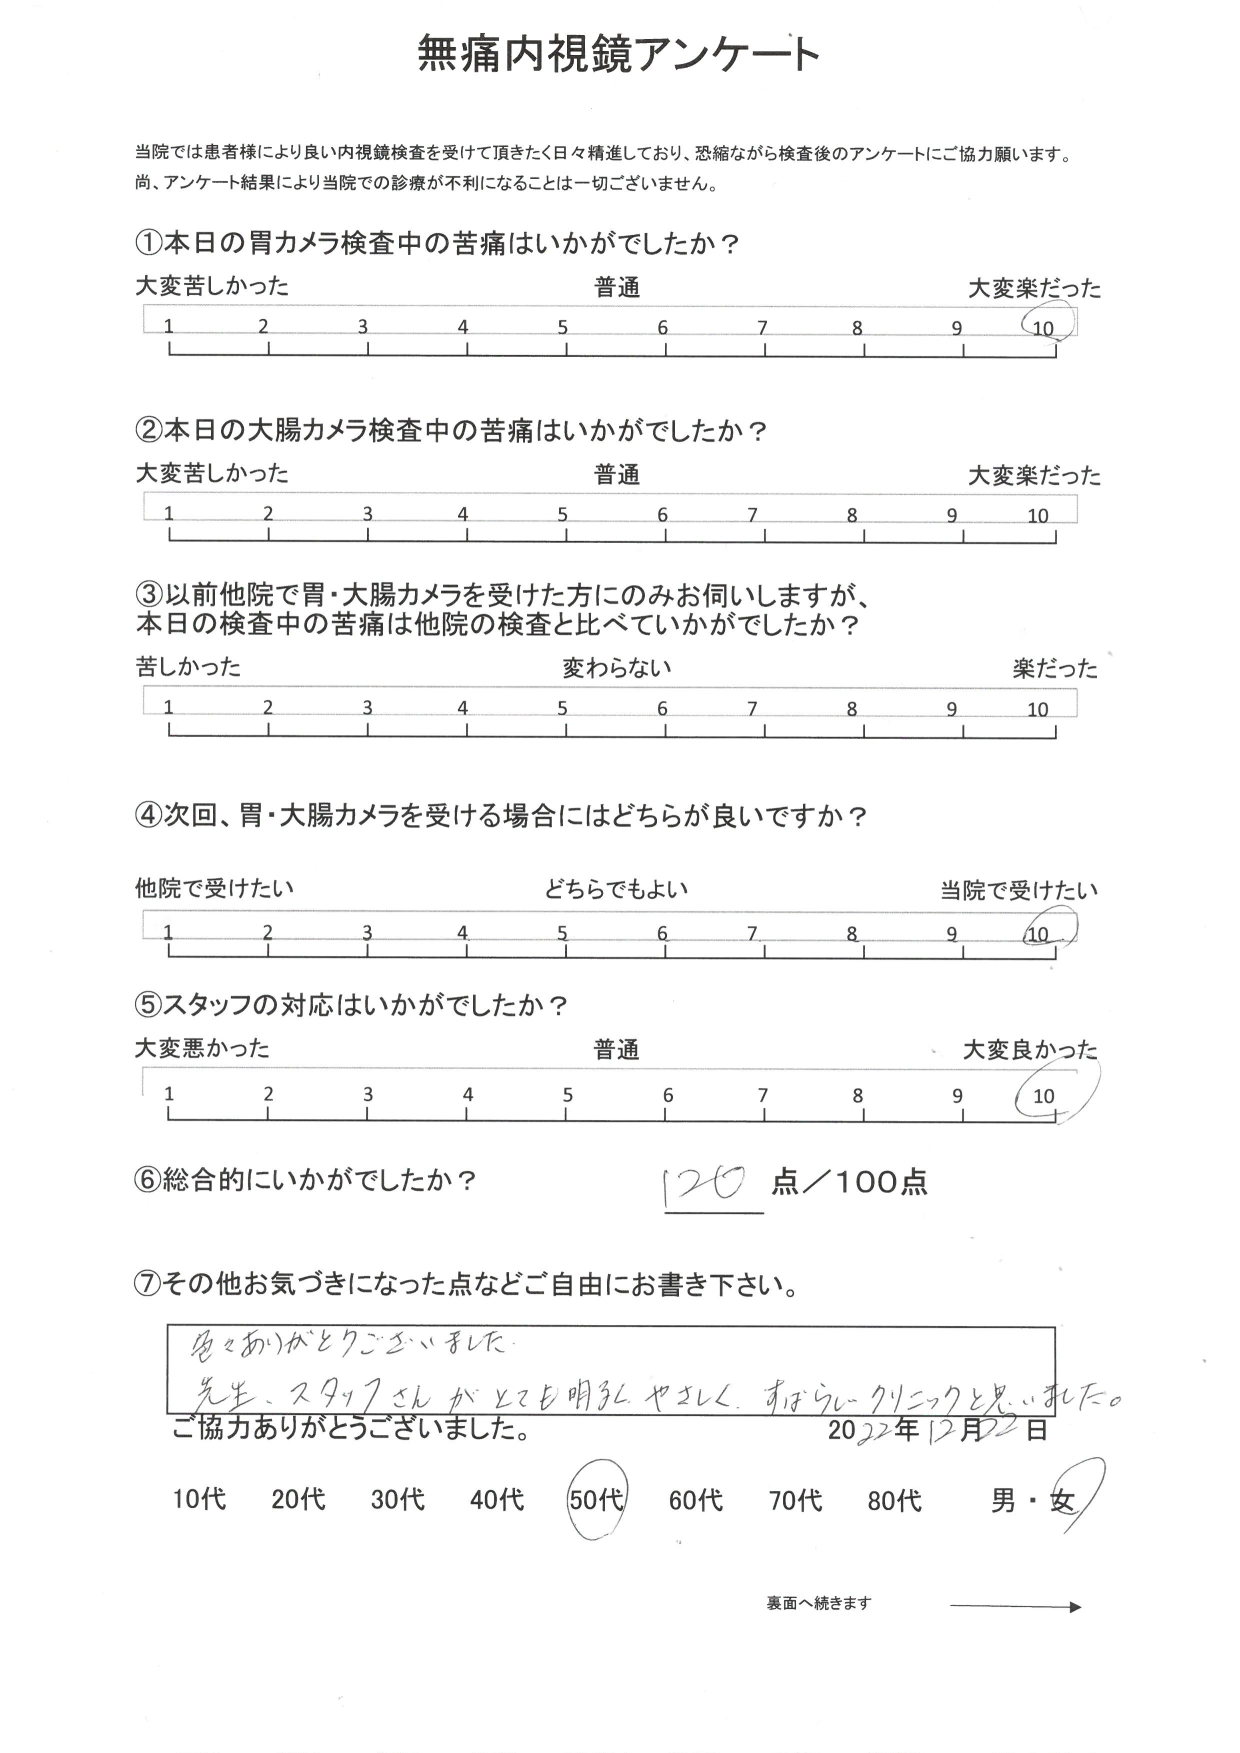 無痛内視鏡アンケート
当院では患者様により良い内視鏡検査を受けて頂きたく日々精進しており、恐縮ながら検査後のアンケートにご協力願います。
尚、アンケート結果により当院での診療が不利になることは一切ございません。
①本日の胃カメラ検査中の苦痛はいかがでしたか？
大変苦しかった 普通 大変楽だった
1 2 3 4 5 6 7 8 9 10
②本日の大腸カメラ検査中の苦痛はいかがでしたか？
大変苦しかった 普通 大変楽だった
1 2 3 4 5 6 7 8 9 10
③以前他院で胃・大腸カメラを受けた方にのみお伺いしますが、
本日の検査中の苦痛は他院の検査と比べていかがでしたか？
苦しかった 変わらない 楽だった
1 2 3 4 5 6 7 8 9 10
④次回、胃・大腸カメラを受ける場合にはどちらが良いですか？
他院で受けたい どちらでもよい 当院で受けたい
1 2 3 4 5 6 7 8 9 10
⑤スタッフの対応はいかがでしたか？
大変悪かった 普通 大変良かった
1 2 3 4 5 6 7 8 9 10
⑥総合的にいかがでしたか？ 120 点／100点
⑦その他お気づきになった点などご自由にお書き下さい。
色々ありがとうございました
先生、スタッフさんがとても明るくやさしく、すばらしいクリニックと思いました。
ご協力ありがとうございました。 2022年12月22日
10代 20代 30代 40代 50代 60代 70代 80代 男・女
裏面へ続きます